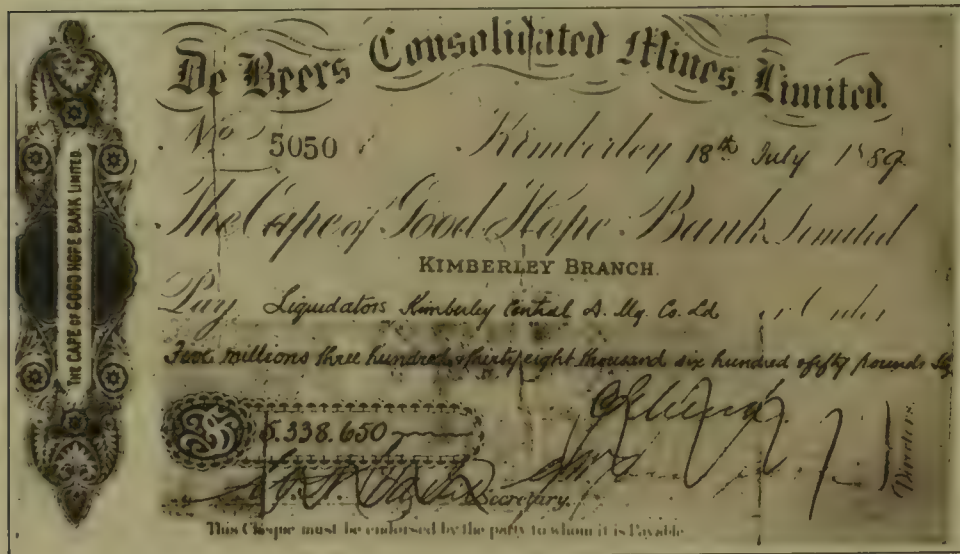 De Beers Consolidated Mines, Limited.
No 5050 Kimberley 18th July 1889
The Cape of Good Hope Bank Limited
KIMBERLEY BRANCH.
Pay Liquidators Kimberley Central D. Mg. Co. Ld. or Order
Five millions three hundred & thirty eight thousand six hundred & fifty pounds Stg
£ 5.338.650
Secretary.
Directors.
This Cheque must be endorsed by the party to whom it is Payable
THE CAPE OF GOOD HOPE BANK LIMITED